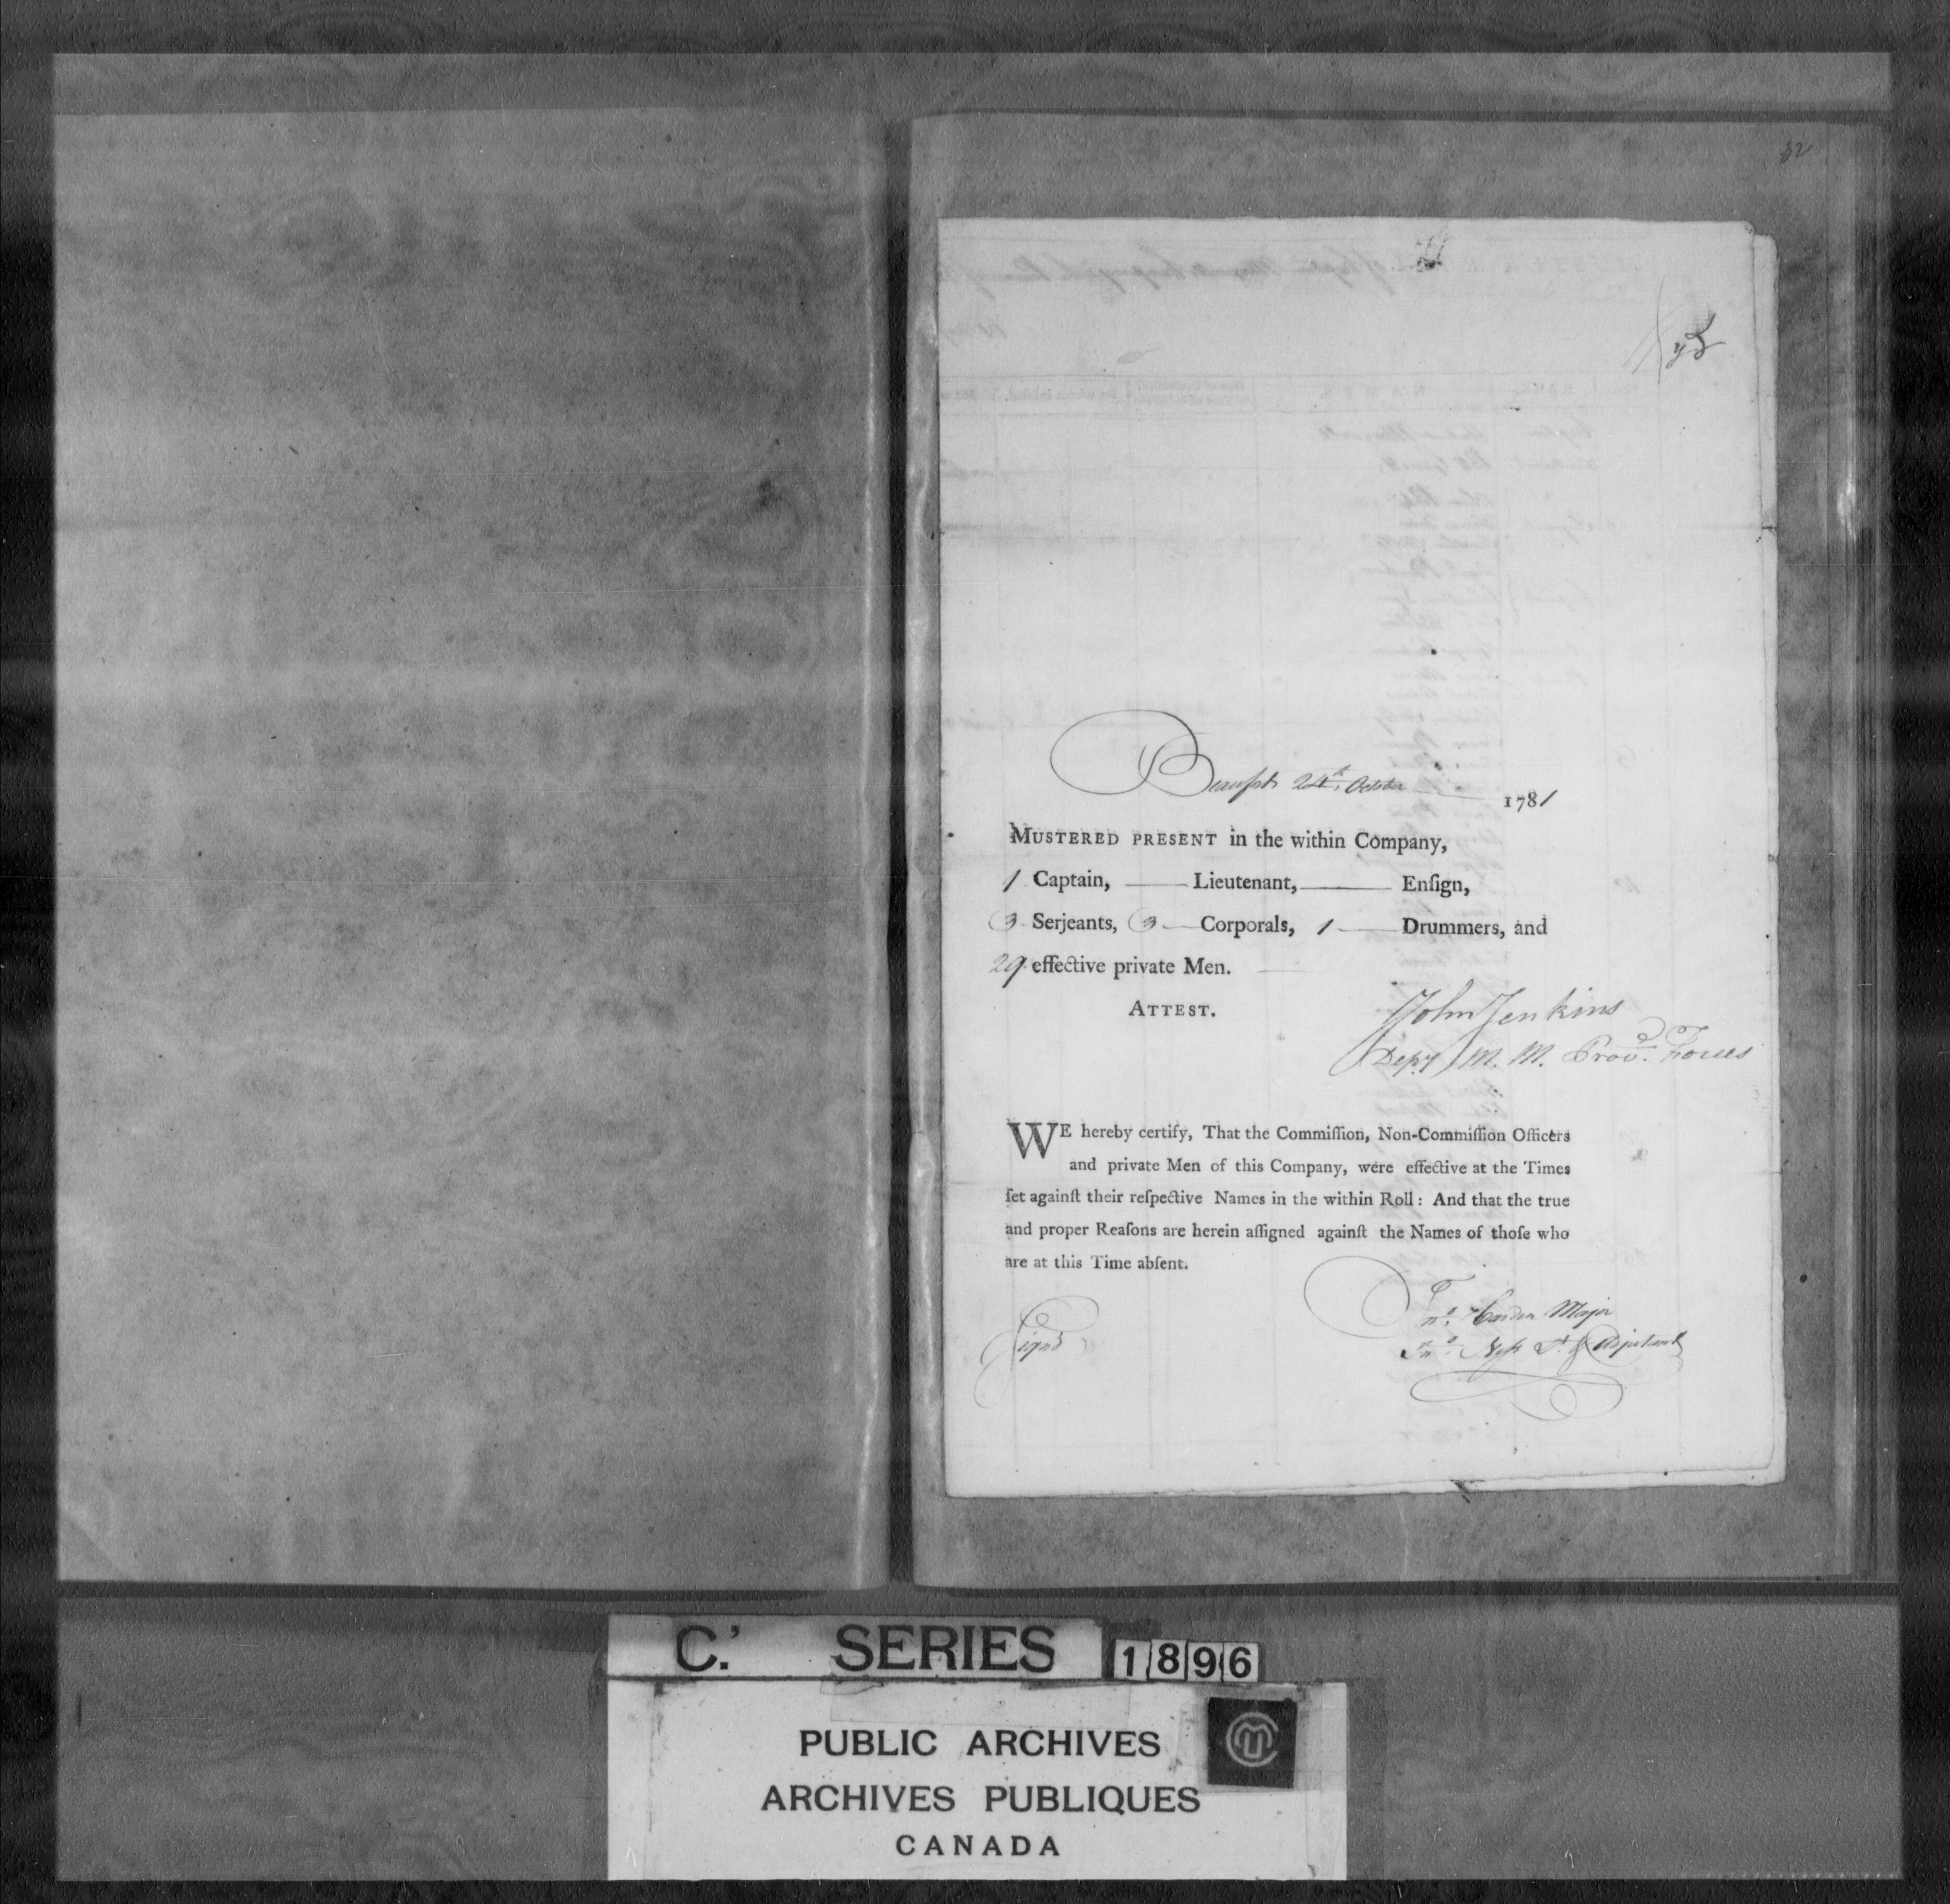 32
Beaufort 24th. October 1781
MUSTERED PRESENT in the within Company,
1 Captain, —— Lieutenant, —— Enſign,
3 Serjeants, 3 — Corporals, 1 —— Drummers, and
29 effective private Men. ——
ATTEST.
John Jenkins
Depy M. M. Provd. Forces
WE hereby certify, That the Commiſſion, Non-Commiſſion Officers
and private Men of this Company, were effective at the Times
ſet againſt their reſpective Names in the within Roll: And that the true
and proper Reaſons are herein aſſigned againſt the Names of thoſe who
are at this Time abſent.
Jno. Carden Major
Signd
Jno. Lt. & Adjutant
C.' SERIES 1896
PUBLIC ARCHIVES
ARCHIVES PUBLIQUES
CANADA